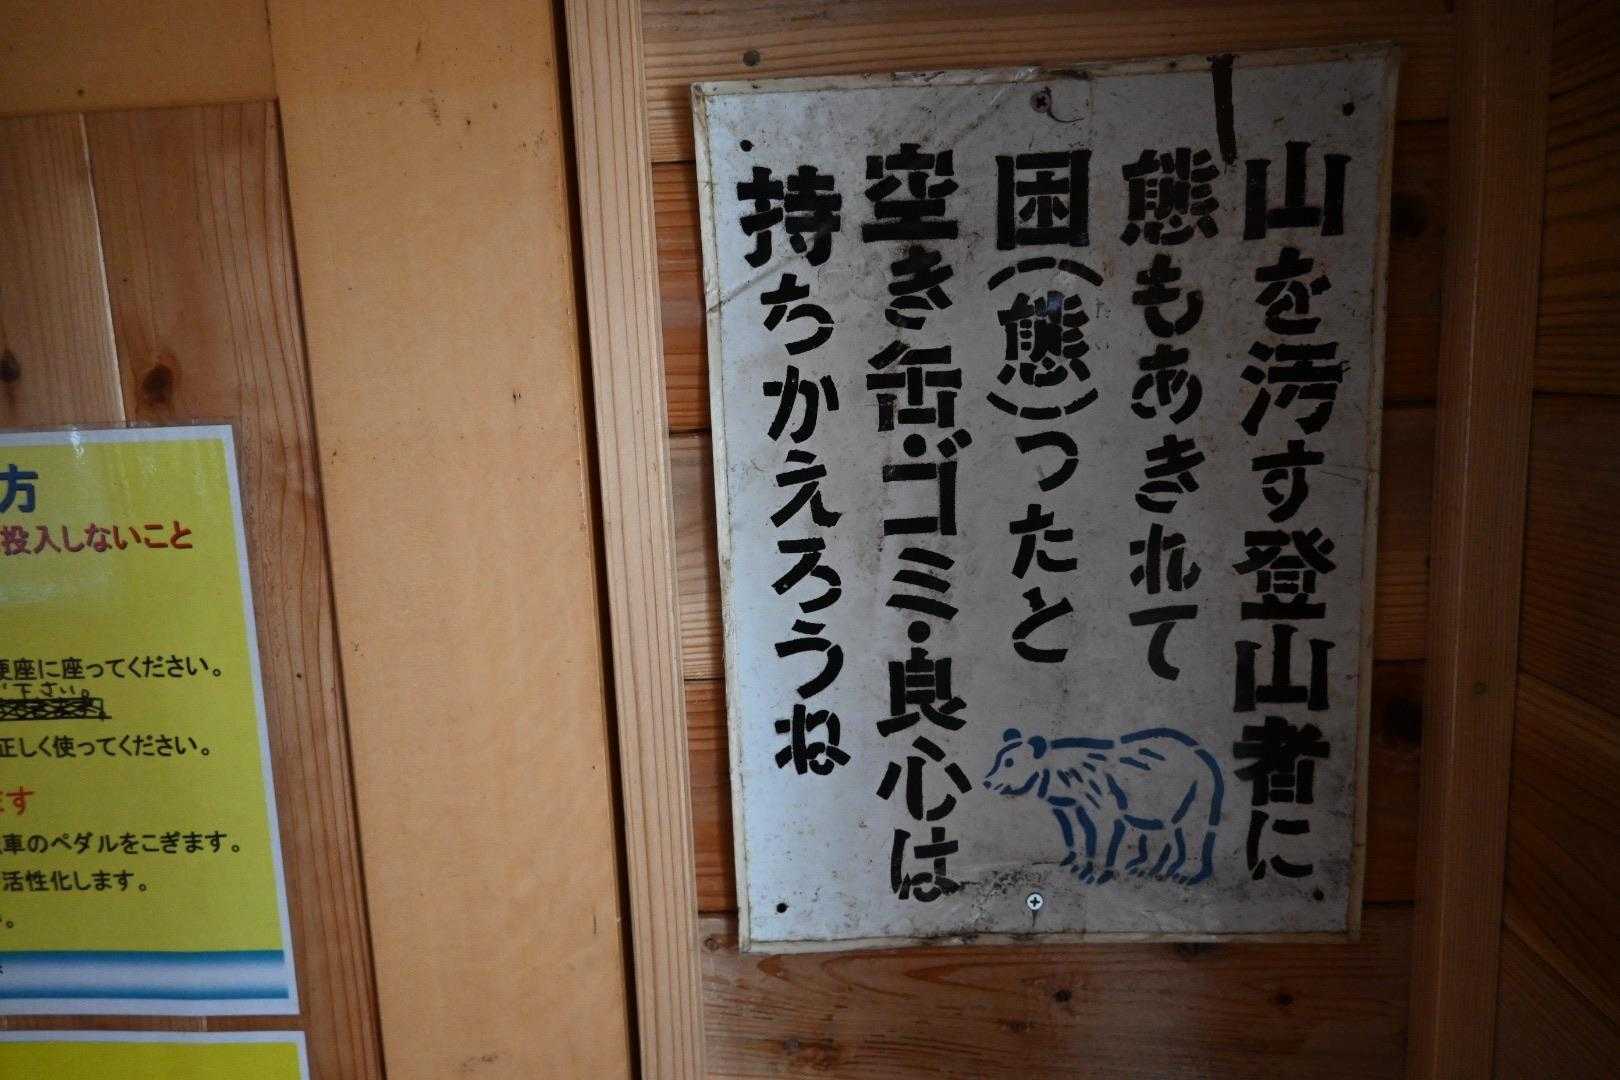 山を汚す登山者に
熊もあきれて
困(熊)つたと
空き缶・ゴミ・良心は
持ちかえろうね
方
投入しないこと
便座に座ってください。
下さい。
正しく使ってください。
ます
車のペダルをこぎます。
活性化します。